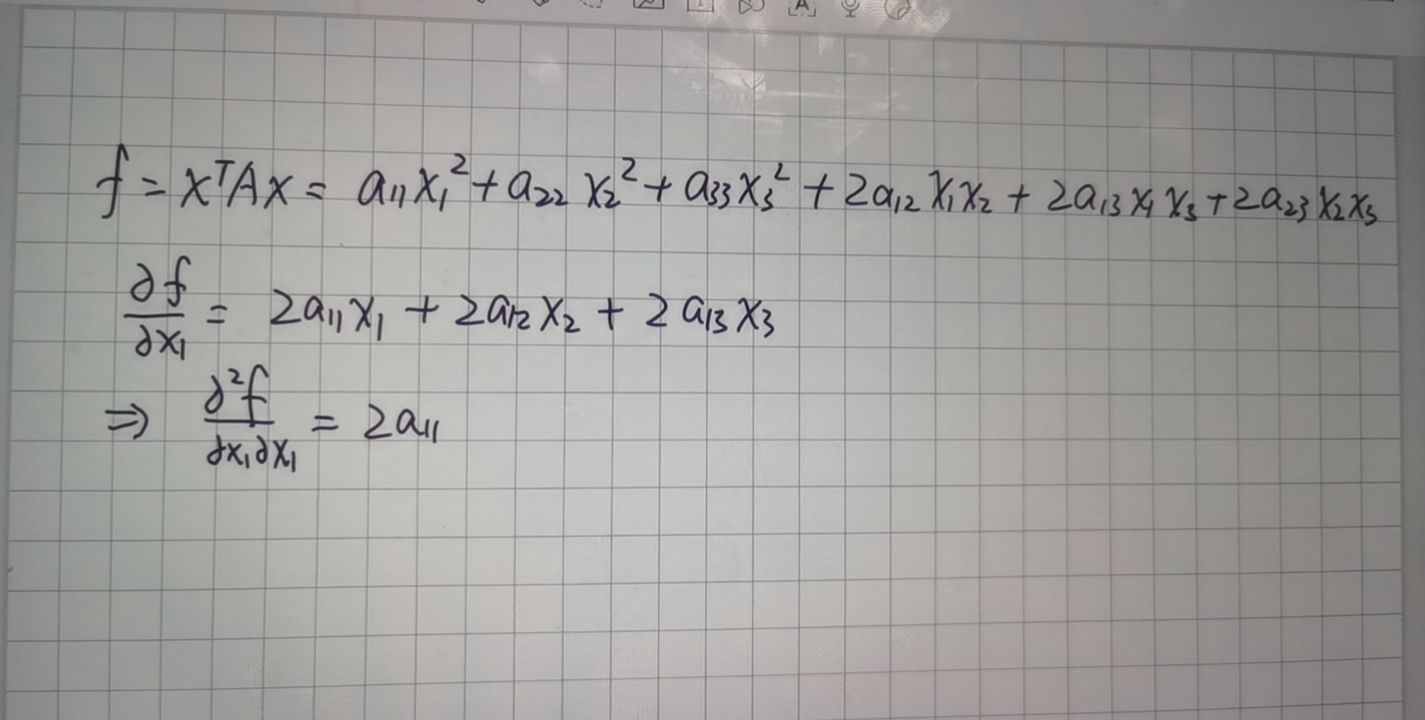 f = xᵀAx = a₁₁x₁² + a₂₂x₂² + a₃₃x₃² + 2a₁₂x₁x₂ + 2a₁₃x₁x₃ + 2a₂₃x₂x₃
∂f/∂x₁ = 2a₁₁x₁ + 2a₁₂x₂ + 2a₁₃x₃
⇒ ∂²f/∂x₁∂x₁ = 2a₁₁